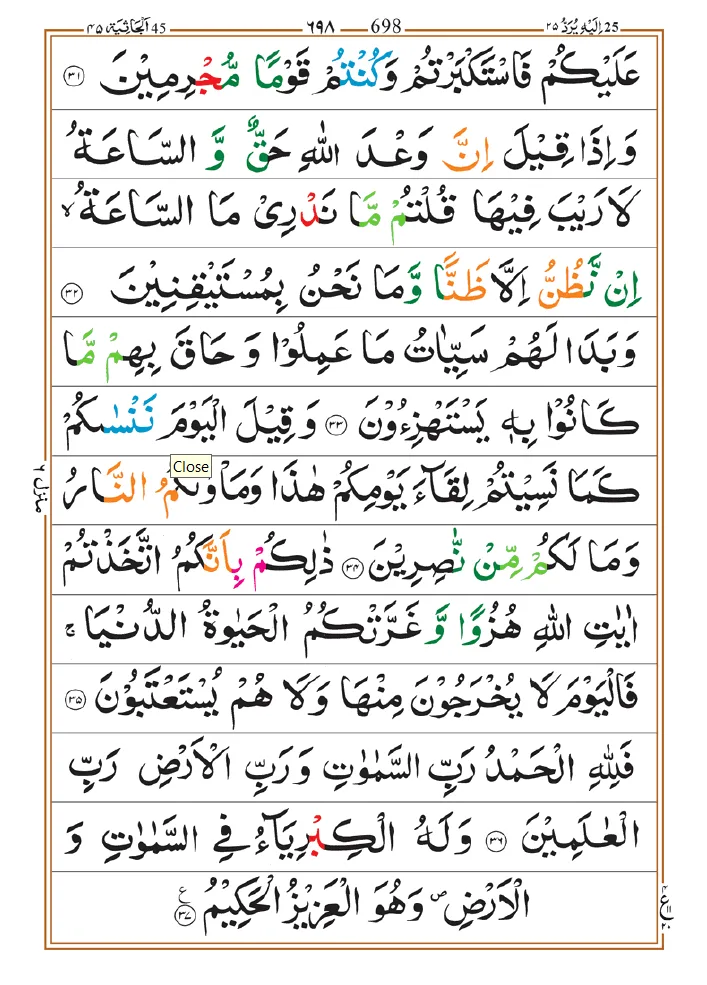 اِلَیْهِ یُرَدُّ ۲۵ 25 698 ٦٩٨ 45 اَلْجَاثِیَة ۴۵
عَلَیْكُمْ فَاسْتَكْبَرْتُمْ وَكُنْتُمْ قَوْمًا مُّجْرِمِیْنَ ۳۱
وَاِذَا قِیْلَ اِنَّ وَعْدَ اللّٰهِ حَقٌّ وَّ السَّاعَةُ
لَا رَیْبَ فِیْهَا قُلْتُمْ مَّا نَدْرِیْ مَا السَّاعَةُ ۙ
اِنْ نَّظُنُّ اِلَّا ظَنًّا وَّمَا نَحْنُ بِمُسْتَیْقِنِیْنَ ۳۲
وَبَدَا لَهُمْ سَیِّاٰتُ مَا عَمِلُوْا وَ حَاقَ بِهِمْ مَّا
كَانُوْا بِهٖ یَسْتَهْزِءُوْنَ ۳۳ وَ قِیْلَ الْیَوْمَ نَنْسٰىكُمْ
Close
كَمَا نَسِیْتُمْ لِقَآءَ یَوْمِكُمْ هٰذَا وَمَاْوٰىكُمُ النَّارُ
وَمَا لَكُمْ مِّنْ نّٰصِرِیْنَ ۳۴ ذٰلِكُمْ بِاَنَّكُمُ اتَّخَذْتُمْ
منزل ٦
اٰیٰتِ اللّٰهِ هُزُوًا وَّ غَرَّتْكُمُ الْحَیٰوةُ الدُّنْیَا ۚ
فَالْیَوْمَ لَا یُخْرَجُوْنَ مِنْهَا وَلَا هُمْ یُسْتَعْتَبُوْنَ ۳۵
فَلِلّٰهِ الْحَمْدُ رَبِّ السَّمٰوٰتِ وَ رَبِّ الْاَرْضِ رَبِّ
الْعٰلَمِیْنَ ۳۶ وَلَهُ الْكِبْرِیَآءُ فِی السَّمٰوٰتِ وَ
الْاَرْضِ ۪ وَهُوَ الْعَزِیْزُ الْحَكِیْمُ ۳۷ ع
۴ ع ۱۱ ۲۰